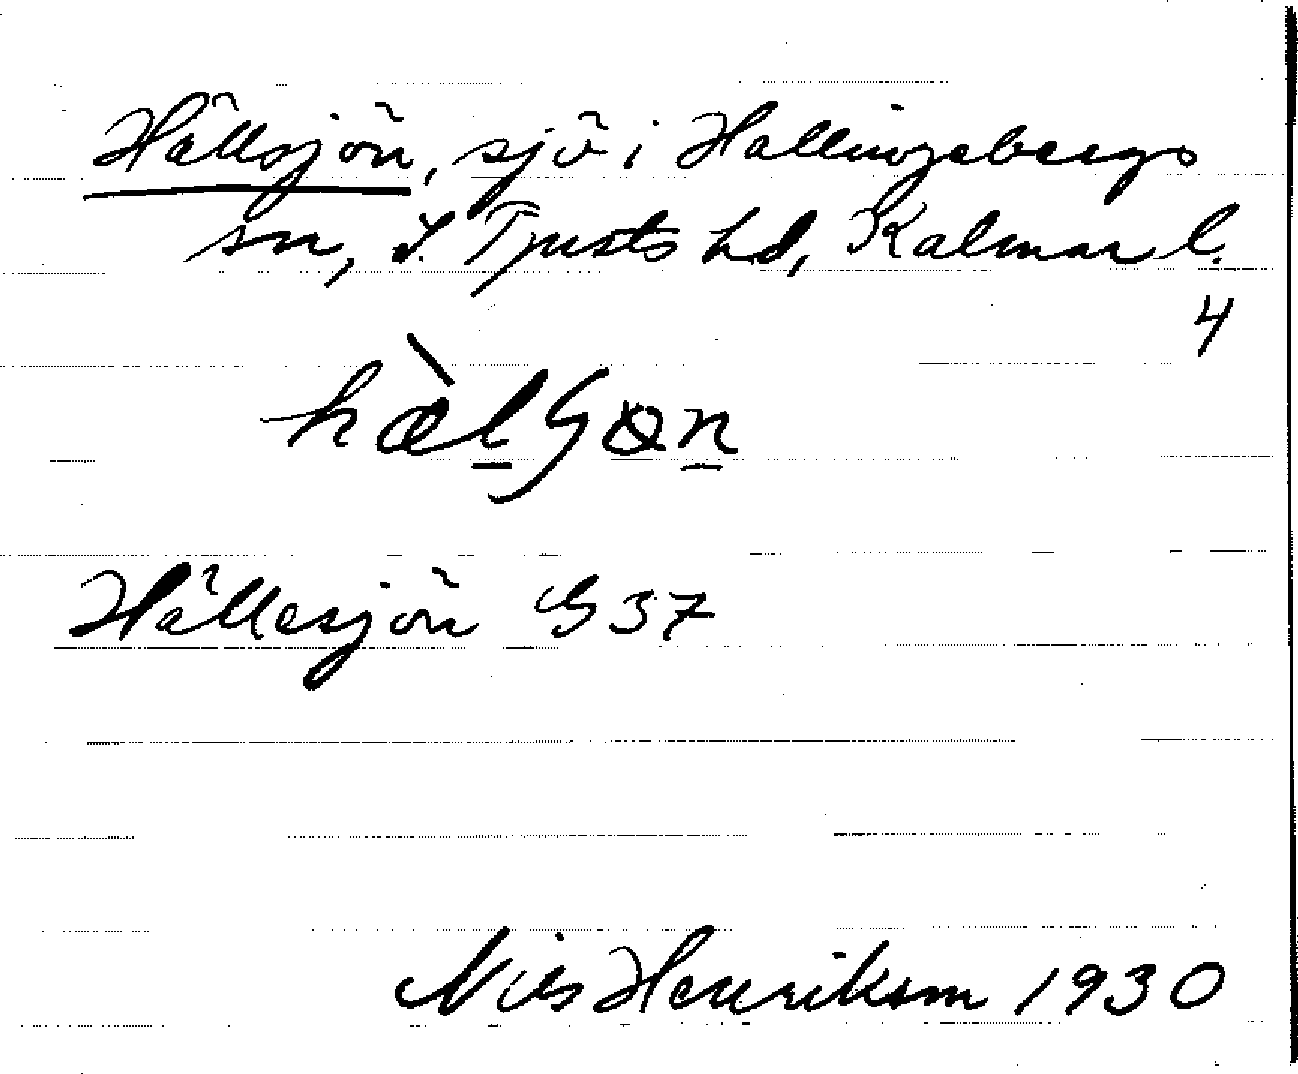 Hällsjön, sjö i Hallingebergs
sn, S. Tjusts hd, Kalmar l.
4
hæ̀lʃɷn
Hällesjön G 37
Nils Henrikson 1930